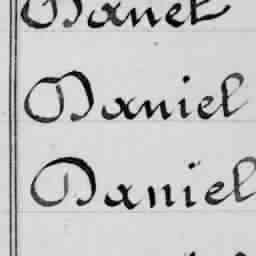 Danet
Daniel
Daniel